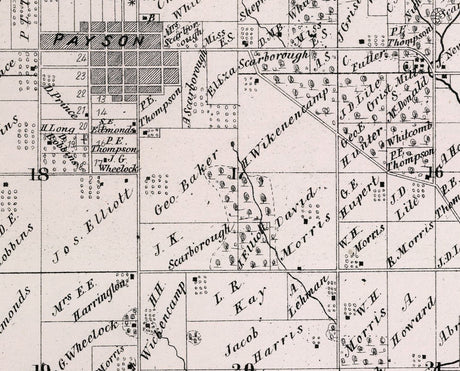 PAYSON
B
24
23
22
21
20
13
14
16
17
D. Prince
H. Long
E.E.
Edmonds
P.E.
Thompson
J.G.
Wheelock
P.E.
Thompson
A. Scarborough
Miss
E.S.
Eliza Scarborough
J.S.
C. Fuller
P.E.
Thompson
J.D. Lile
Grist Mill
McDonald
Geo. E.
Hunter
Whitcomb
P.E.
Thompson
H. Wikenencamp
18
17
16
Geo Baker
Jos. Elliott
J.K.
Scarborough
J. Elliott
David
Morris
G.E.
Hupert
J.D.
Lile
W.H.
Morris
B. Morris
J.D.L
P.E.
Tho
A. Ho
D.E.
obbins
monds
Mrs E.E.
Harrington
G. Wheelock
Morris
H.H.
Wickencamp
L.R.
Kay
A.
Lehman
Jacob
Harris
W.H.
Morris
A.
Howard
Abr
19
20
21